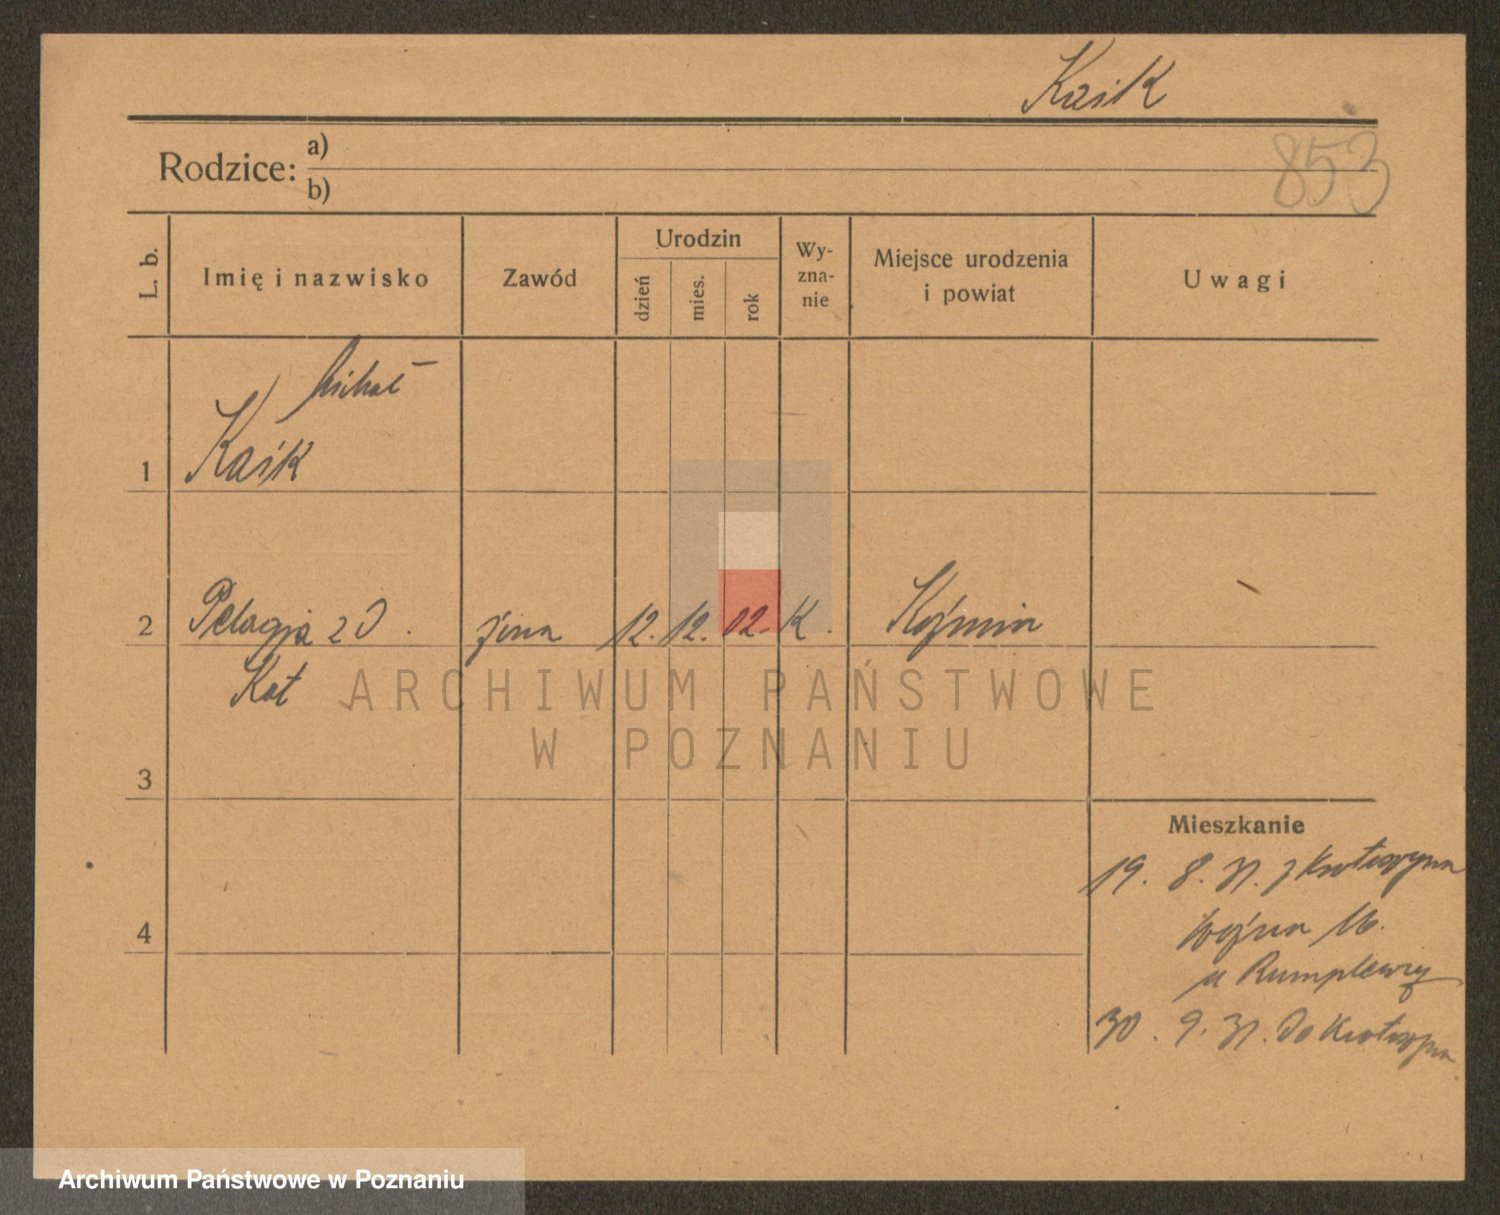 Kaik
853
Rodzice: a)
b)
L. b.
Imię i nazwisko
Zawód
Urodzin
dzień
mies.
rok
Wy-
zna-
nie
Miejsce urodzenia
i powiat
Uwagi
Michał
1 Kaik
2 Pelagja zD. żona 12. 12. 02. K. Koźmin
Kot
ARCHIWUM PAŃSTWOWE
W POZNANIU
3
Mieszkanie
19. 8. 31. z Krotoszyna
4
16.
u
30. 9. 31. do Krotoszyna
Archiwum Państwowe w Poznaniu